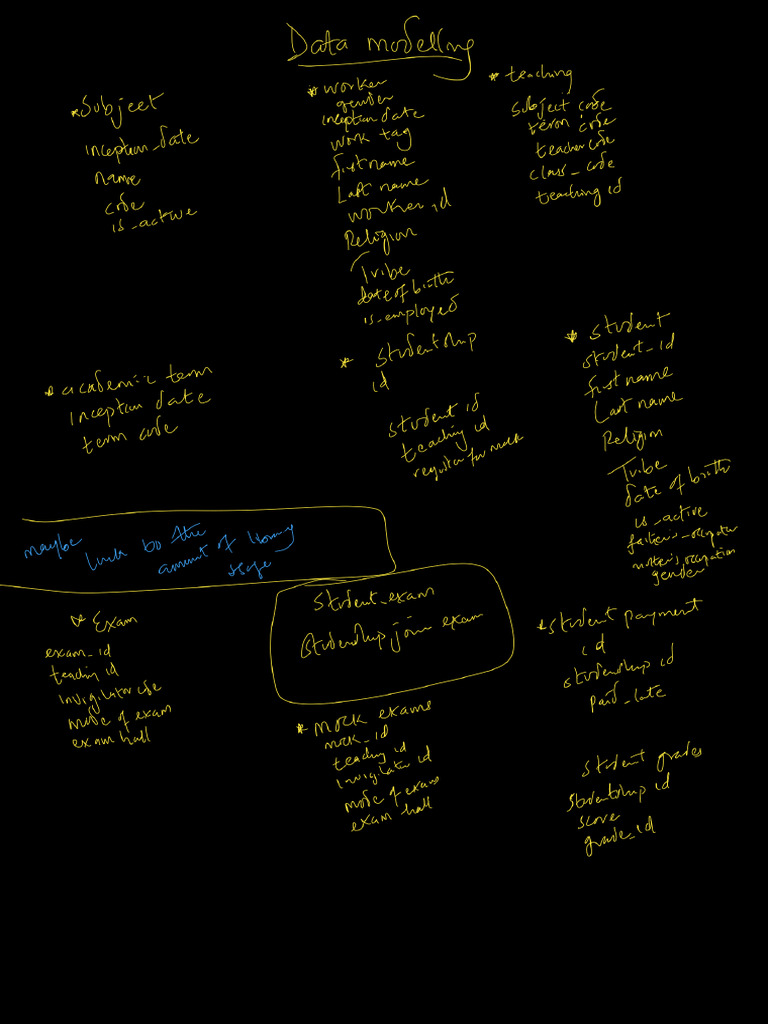 Data modelling
* Subject
inception_date
name
code
is_active
* worker
gender
inception date
work tag
first name
Last name
worker_id
Religion
Tribe
date of birth
is_employed
* teaching
subject code
term code
teacher code
class_code
teaching id
* academic term
inception date
term code
* studentship
id
student id
teaching id
register for mock
* student
student_id
first name
Last name
Religion
Tribe
date of birth
is_active
father's_occupation
mother's_occupation
gender
maybe
to the
amount of
student_exam
studentship join exam
* Exam
exam_id
teaching id
invigilator code
mode of exam
exam hall
* mock exams
mock_id
teaching id
invigilator id
mode of exam
exam hall
* student payment
id
studentship id
paid_late
student grades
studentship id
score
grade_id